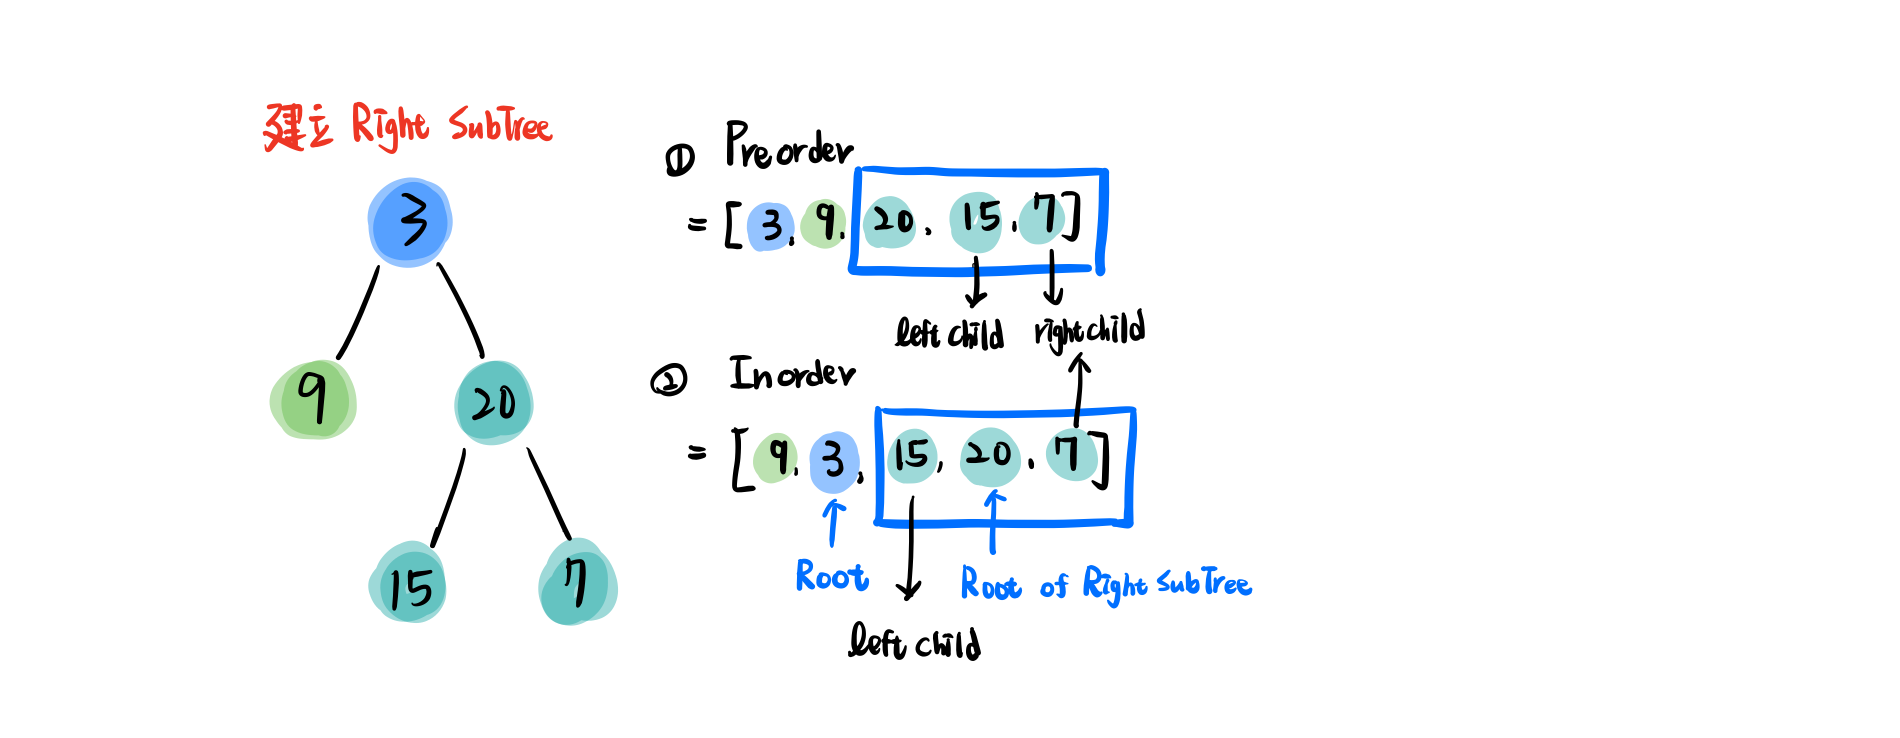 建立 Right SubTree
3
9
20
15
7
① Preorder
= [3, 9, 20, 15, 7]
left child
right child
② Inorder
= [9, 3, 15, 20, 7]
Root
Root of Right SubTree
left child